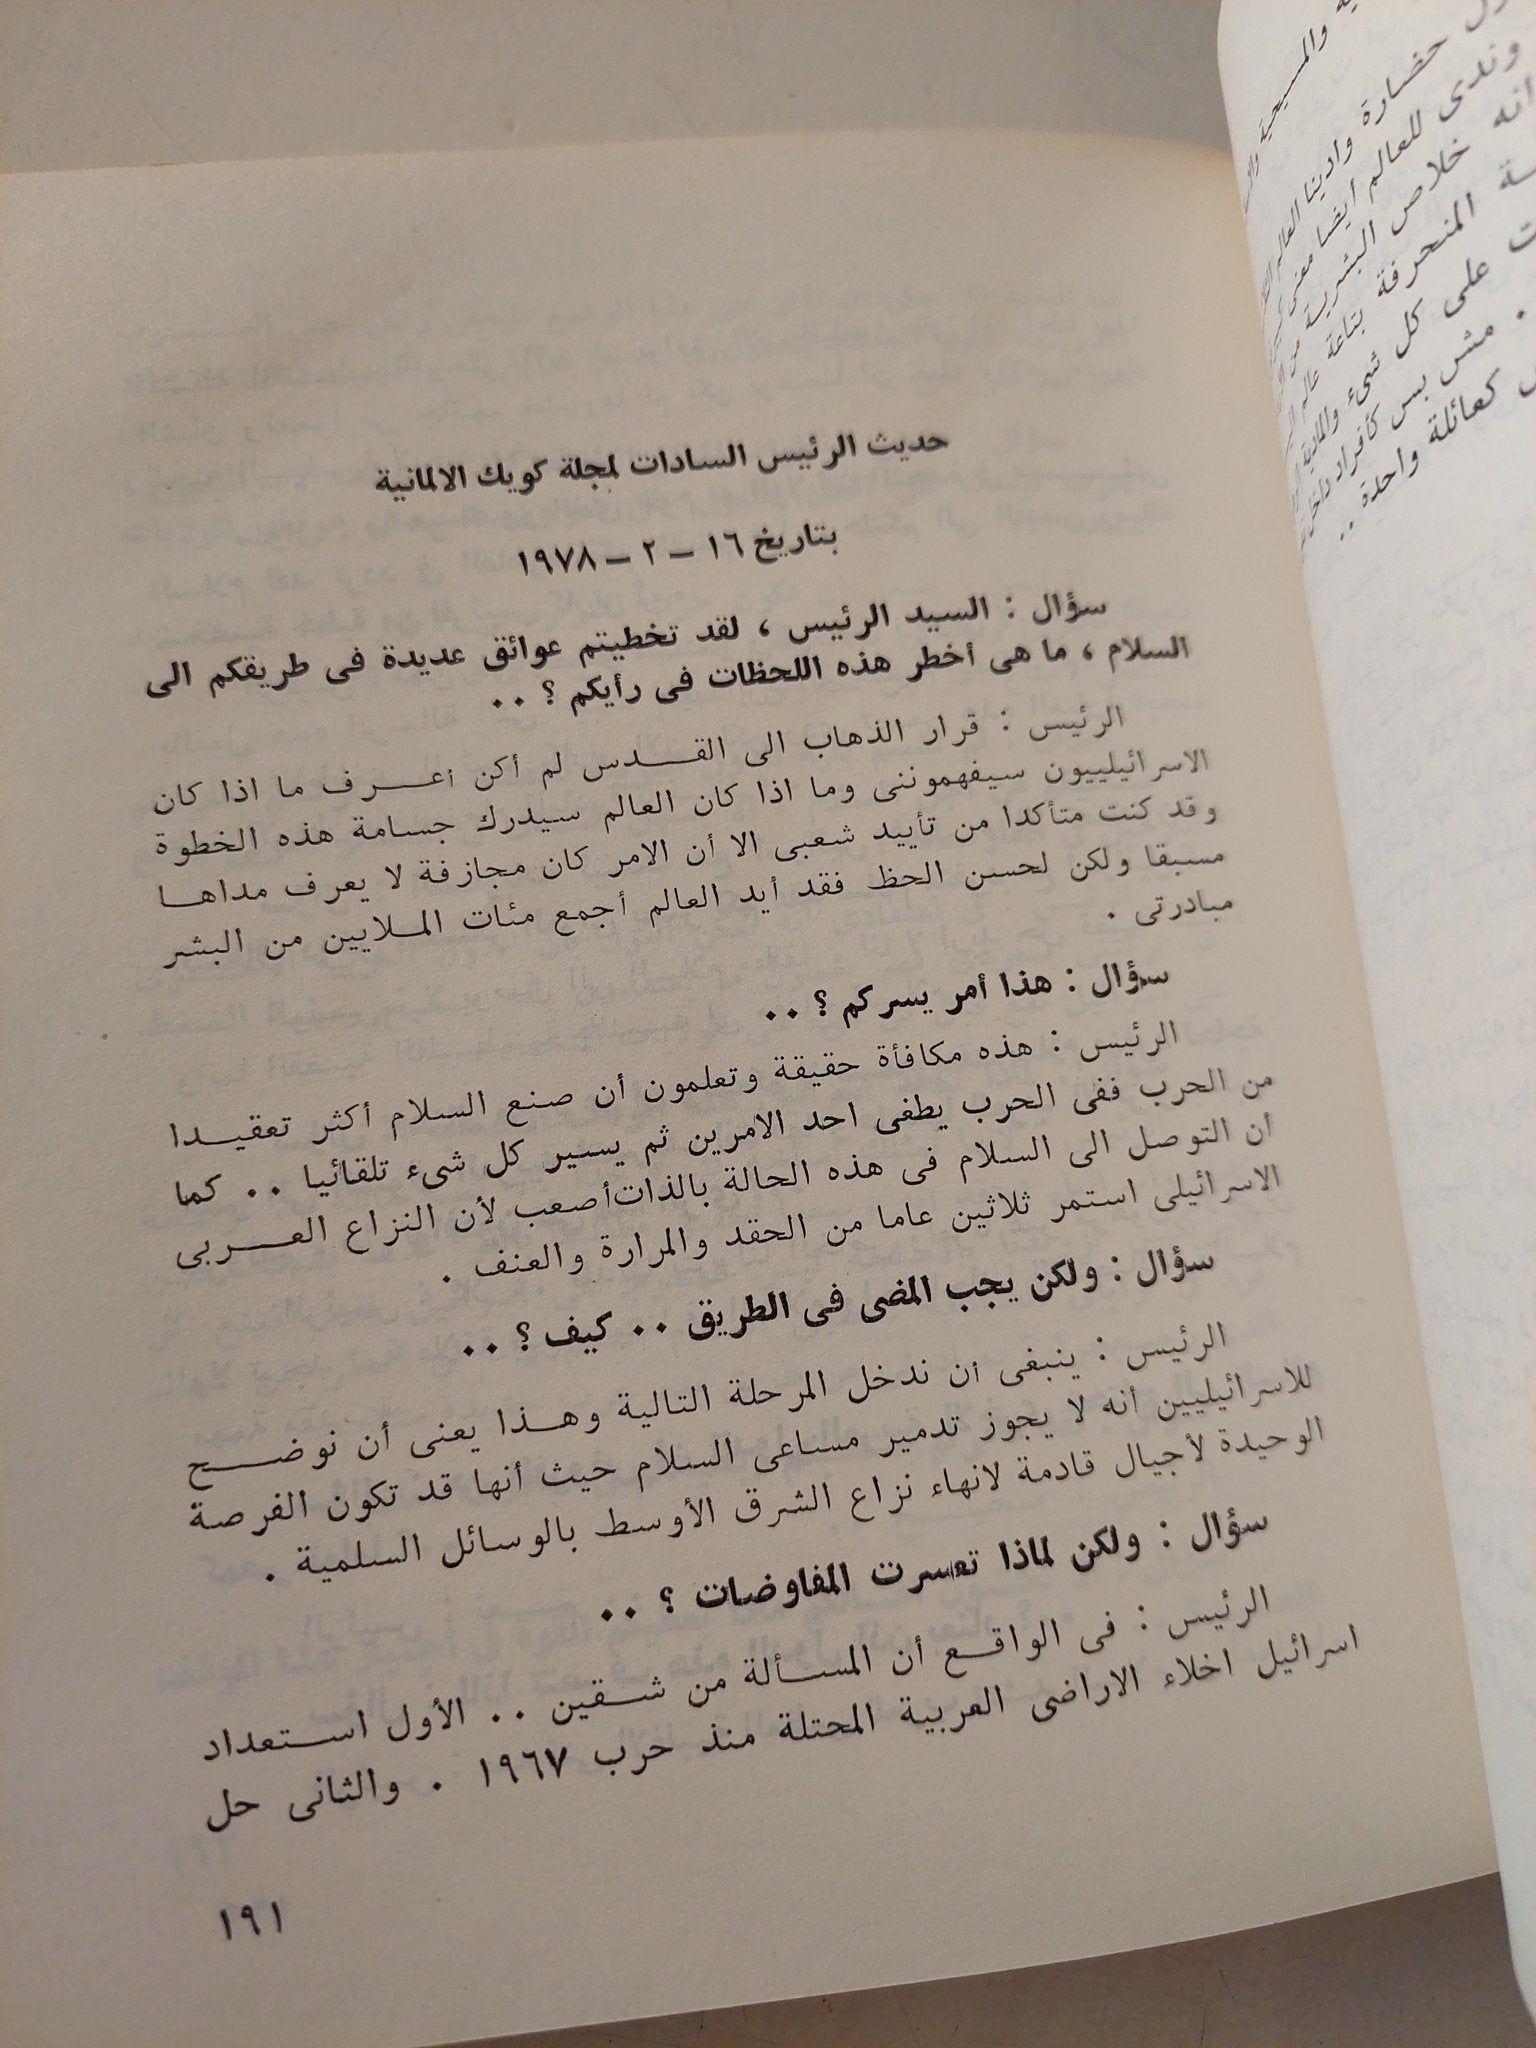 حديث الرئيس السادات لمجلة كويك الالمانية
بتاريخ ١٦ – ٢ – ١٩٧٨
سؤال : السيد الرئيس ، لقد تخطيتم عوائق عديدة فى طريقكم الى
السلام ، ما هى أخطر هذه اللحظات فى رأيكم ؟ ٠٠
الرئيس : قرار الذهاب الى القدس لم أكن أعرف ما اذا كان
الاسرائيلييون سيفهموننى وما اذا كان العالم سيدرك جسامة هذه الخطوة
وقد كنت متأكدا من تأييد شعبى الا أن الامر كان مجازفة لا يعرف مداها
مسبقا ولكن لحسن الحظ فقد أيد العالم أجمع مئات الملايين من البشر
مبادرتى ٠
سؤال : هذا أمر يسركم ؟ ٠٠
الرئيس : هذه مكافأة حقيقة وتعلمون أن صنع السلام أكثر تعقيدا
من الحرب ففى الحرب يطفى احد الامرين ثم يسير كل شىء تلقائيا ٠٠ كما
أن التوصل الى السلام فى هذه الحالة بالذات أصعب لأن النزاع العربى
الاسرائيلى استمر ثلاثين عاما من الحقد والمرارة والعنف ٠
سؤال : ولكن يجب المضى فى الطريق ٠٠ كيف ؟ ٠٠
الرئيس : ينبغى ان ندخل المرحلة التالية وهذا يعنى أن نوضح
للاسرائيليين أنه لا يجوز تدمير مساعى السلام حيث أنها قد تكون الفرصة
الوحيدة لأجيال قادمة لانهاء نزاع الشرق الأوسط بالوسائل السلمية ٠
سؤال : ولكن لماذا تعسرت المفاوضات ؟ ٠٠
الرئيس : فى الواقع أن المسألة من شقين ٠٠ الأول استعداد
اسرائيل اخلاء الاراضى العربية المحتلة منذ حرب ١٩٦٧ ٠ والثانى حل
١٩١
والمسيحية
حضارة وادينا العالم
وندى للعالم أيضا معنى
انه خلاص البشرية من
المنحرفة بتاعة عالم
على كل شىء والمادية
٠ مش بس كأفراد داخل
كعائلة واحدة ٠٠